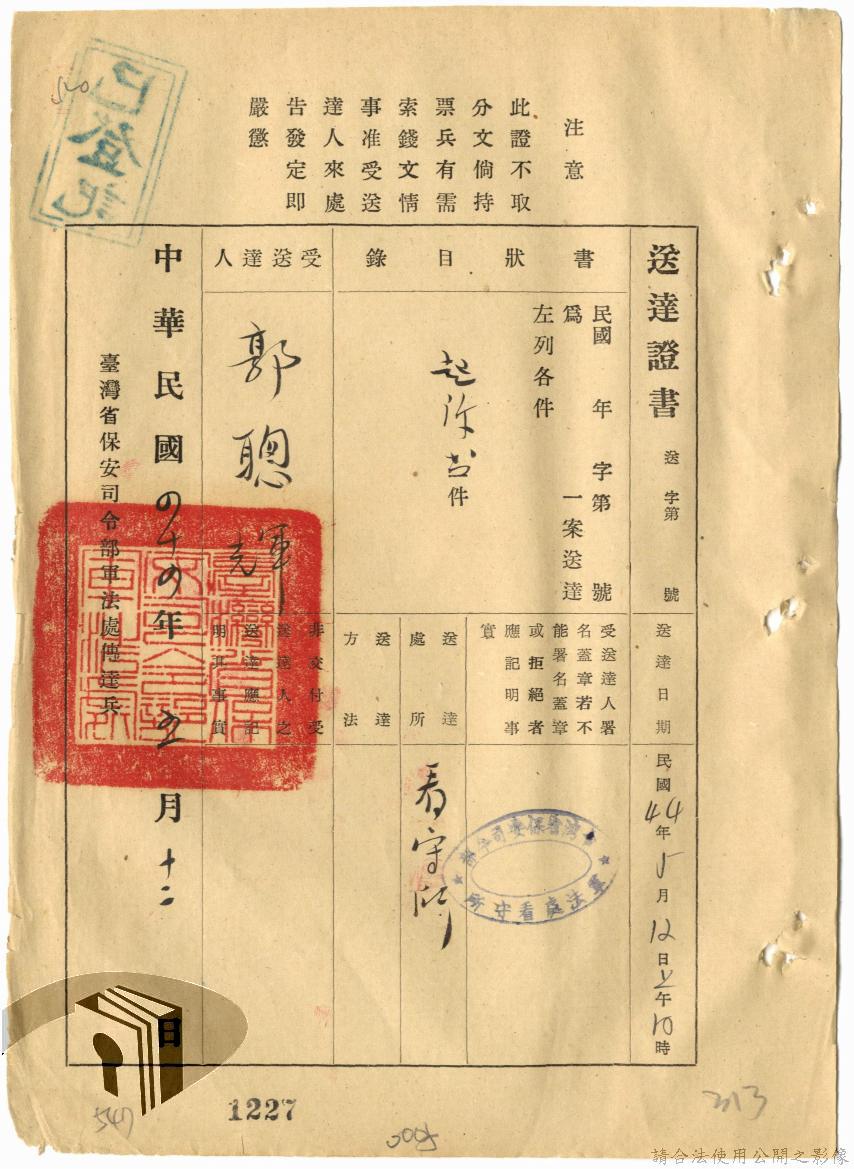 注意
此證不取
分文倘持
票兵有需
索錢文情
事准受送
達人來處
告發定即
嚴懲
已登記
送達證書
送 字第 號
送達日期
民國44年5月12日上午10時
書狀目錄
民國 年 字第 號
為 一案送達
左列各件
起訴書件
受送達人署
名蓋章若不
能署名蓋章
或拒絕者
應記明事
實
臺灣省保安司令部
軍法處看守所
送達處所
看守所
送達方法
受送達人
郭聰
非交付受
送達人之
送達應記
明其事實
中華民國四十四年五月十二日
臺灣省保安司令部軍法處傳達兵
540
547
1227
313
請合法使用公開之影像